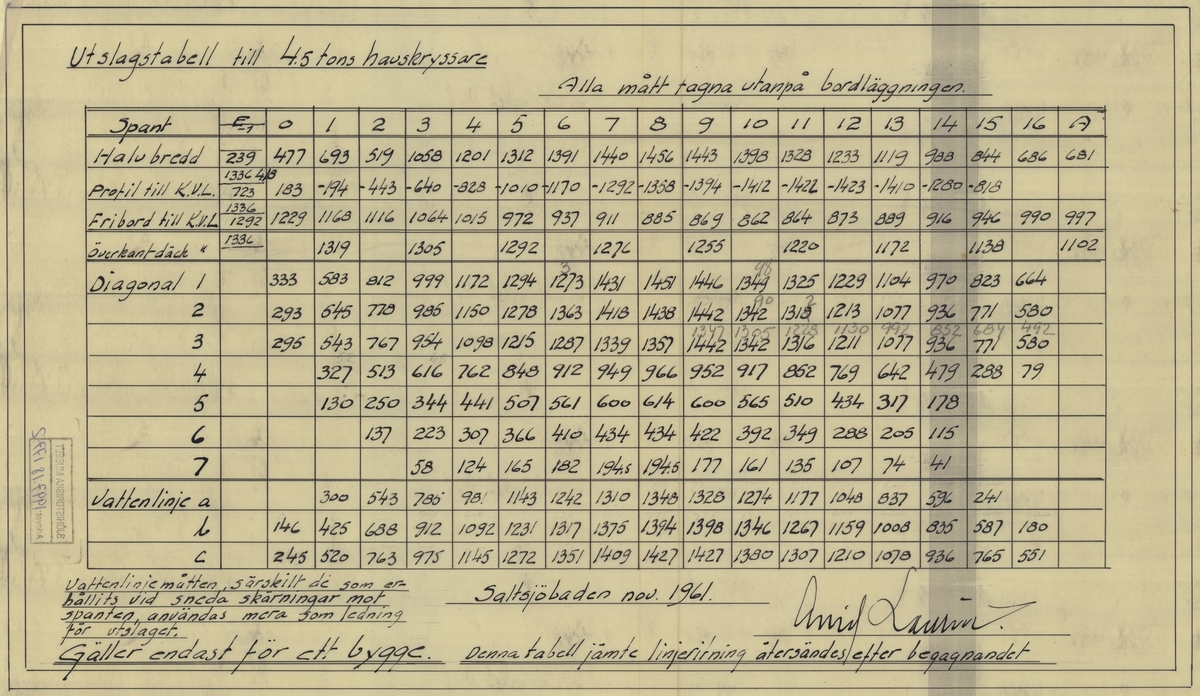 Utslagstabell till 4.5 tons havskryssare
Alla mått tagna utanpå bordläggningen.
Spant 0 1 2 3 4 5 6 7 8 9 10 11 12 13 14 15 16 A
Halvbredd 239 477 693 519 1058 1201 1312 1391 1440 1456 1443 1398 1328 1233 1119 988 844 686 681
Profil till K.V.L. 723 183 -194 -443 -640 -828 -1010 -1170 -1292 -1358 -1394 -1412 -1422 -1423 -1410 -1280 -818
Fribord till K.V.L 1336 1292 1229 1168 1116 1064 1015 972 937 911 885 869 862 864 873 889 916 946 990 997
Överkant däck " 1336 1319 1305 1292 1276 1255 1220 1172 1138 1102
Diagonal 1 333 583 812 999 1172 1294 1273 1431 1451 1446 1349 1325 1229 1104 970 823 664
2 293 545 778 985 1150 1278 1363 1418 1438 1442 1342 1318 1213 1077 936 771 580
1347 1305 1228 1130 992 852 684 492
3 295 543 767 954 1098 1215 1287 1339 1357 1442 1342 1316 1211 1077 936 771 580
4 327 513 616 762 848 912 949 966 952 917 852 769 642 479 288 79
5 130 250 344 441 507 561 600 614 600 565 510 434 317 178
6 137 223 307 366 410 434 434 422 392 349 288 205 115
7 58 124 165 182 194.5 194.5 177 161 135 107 74 41
Vattenlinje a 300 543 785 981 1143 1242 1310 1348 1328 1274 1177 1048 837 596 241
b 146 425 688 912 1092 1231 1317 1375 1394 1398 1346 1267 1159 1008 835 587 180
c 245 520 763 975 1145 1272 1351 1409 1427 1427 1380 1307 1210 1078 936 765 551
Vattenlinjemåtten, särskilt de som er-
hållits vid sneda skärningar mot
spanten, användas mera som ledning
för utslaget.
Saltsjöbaden nov. 1961.
Arvid Laurin.
Gäller endast för ett bygge.
Denna tabell jämte linjeritning återsändes efter begagnandet